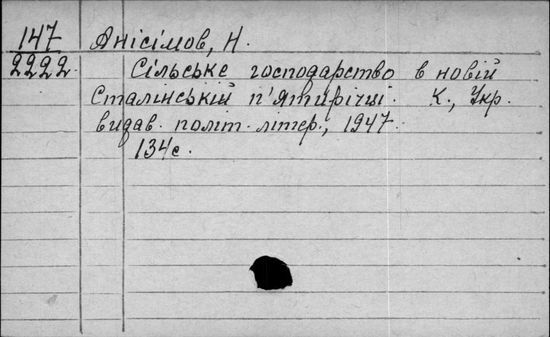 147 Анісімов, Н.
2222 Сільське господарство в новій
Сталінській п'ятирічці. К., Укр.
видав. політ. літер., 1947.
134 с.